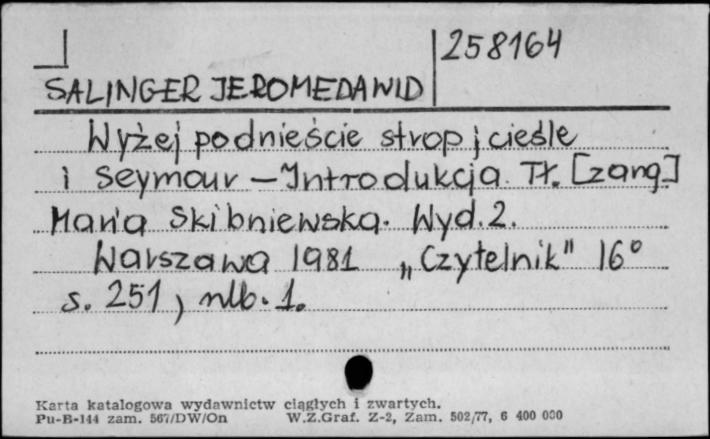 258164
SALINGER JEROME DAWID
Wyżej podnieście strop, cieśle
i Seymour – Introdukcja. Tł. [z ang.]
Maria Skibniewska. Wyd. 2.
Warszawa 1981 „Czytelnik" 16°
s. 251, nlb. 1.
Karta katalogowa wydawnictw ciągłych i zwartych.
Pu-B-144 zam. 567/DW/On W.Z.Graf. Z-2, Zam. 502/77, 6 400 000